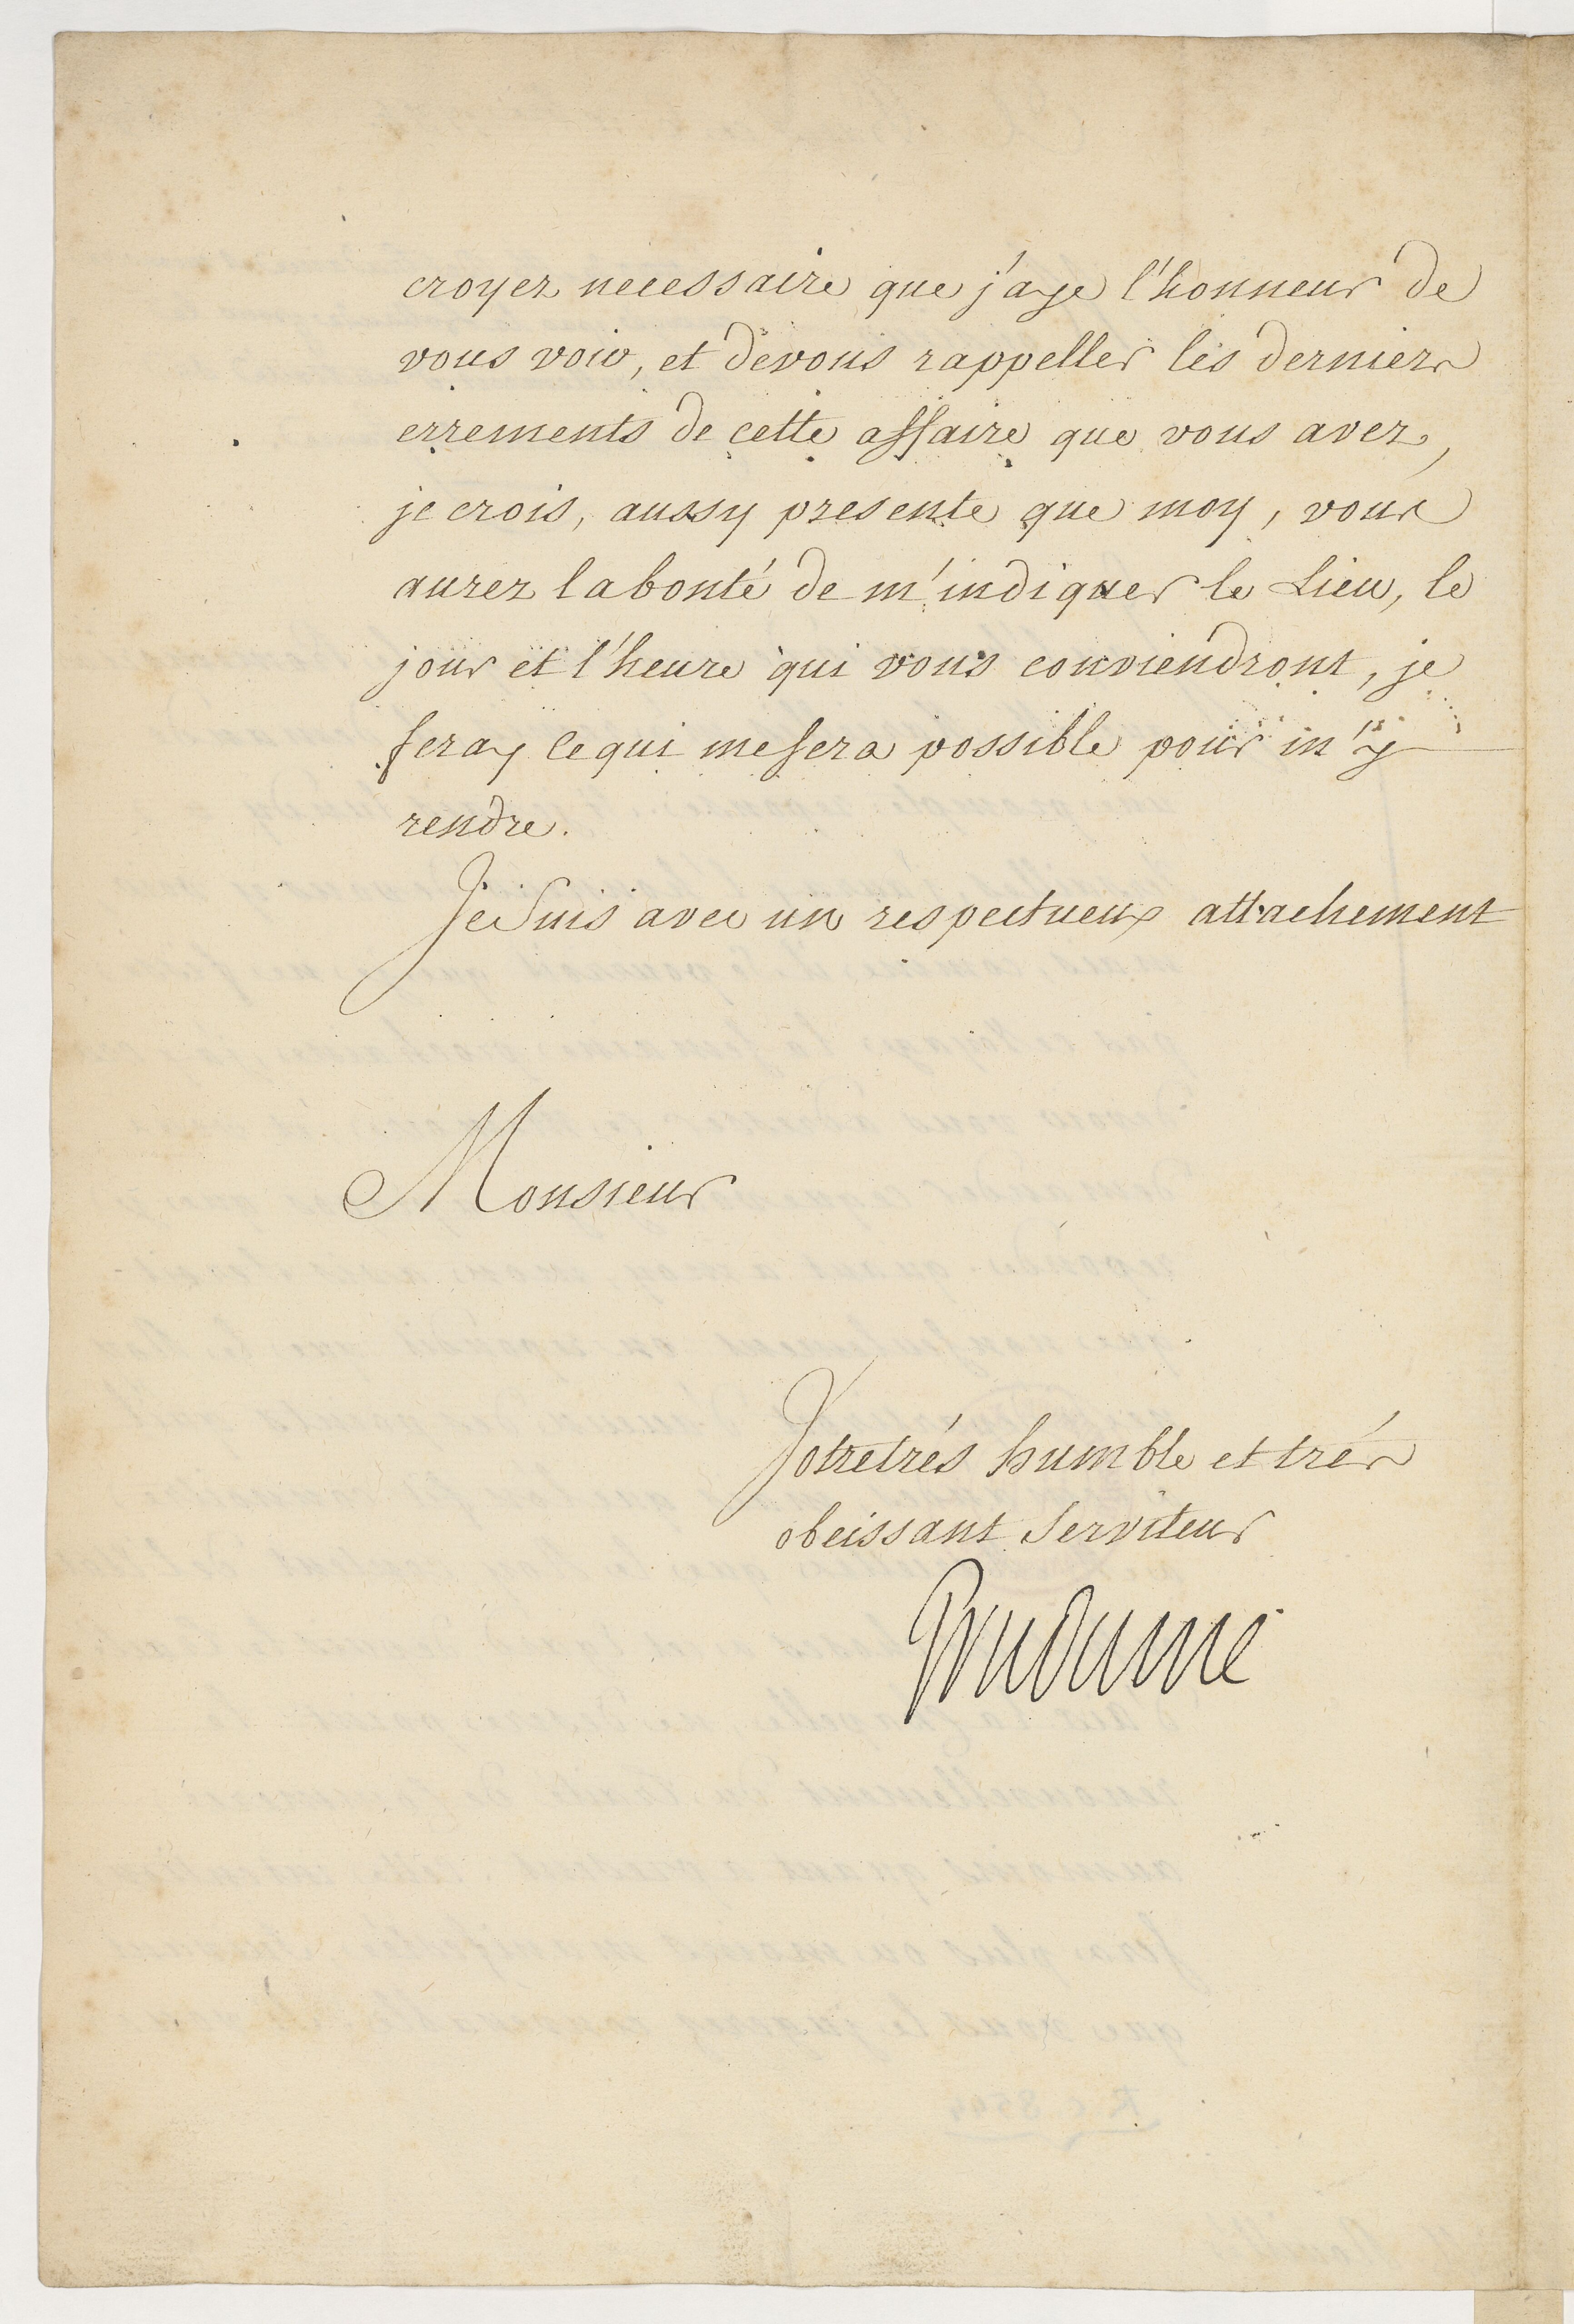 croyez necessaire que j'aye l'honneur de
vous voir, et de vous rappeller les derniers
errements de cette affaire que vous avez,
je crois, aussy presente que moy, vous
aurez la bonté de m'indiquer le Lieu, le
jour et l'heure qui vous conviendront, je
feray ce qui me sera possible pour m'y
rendre.
Je Suis avec un respectueux attachement
Monsieur
Votre très humble et très
obeissant Serviteur